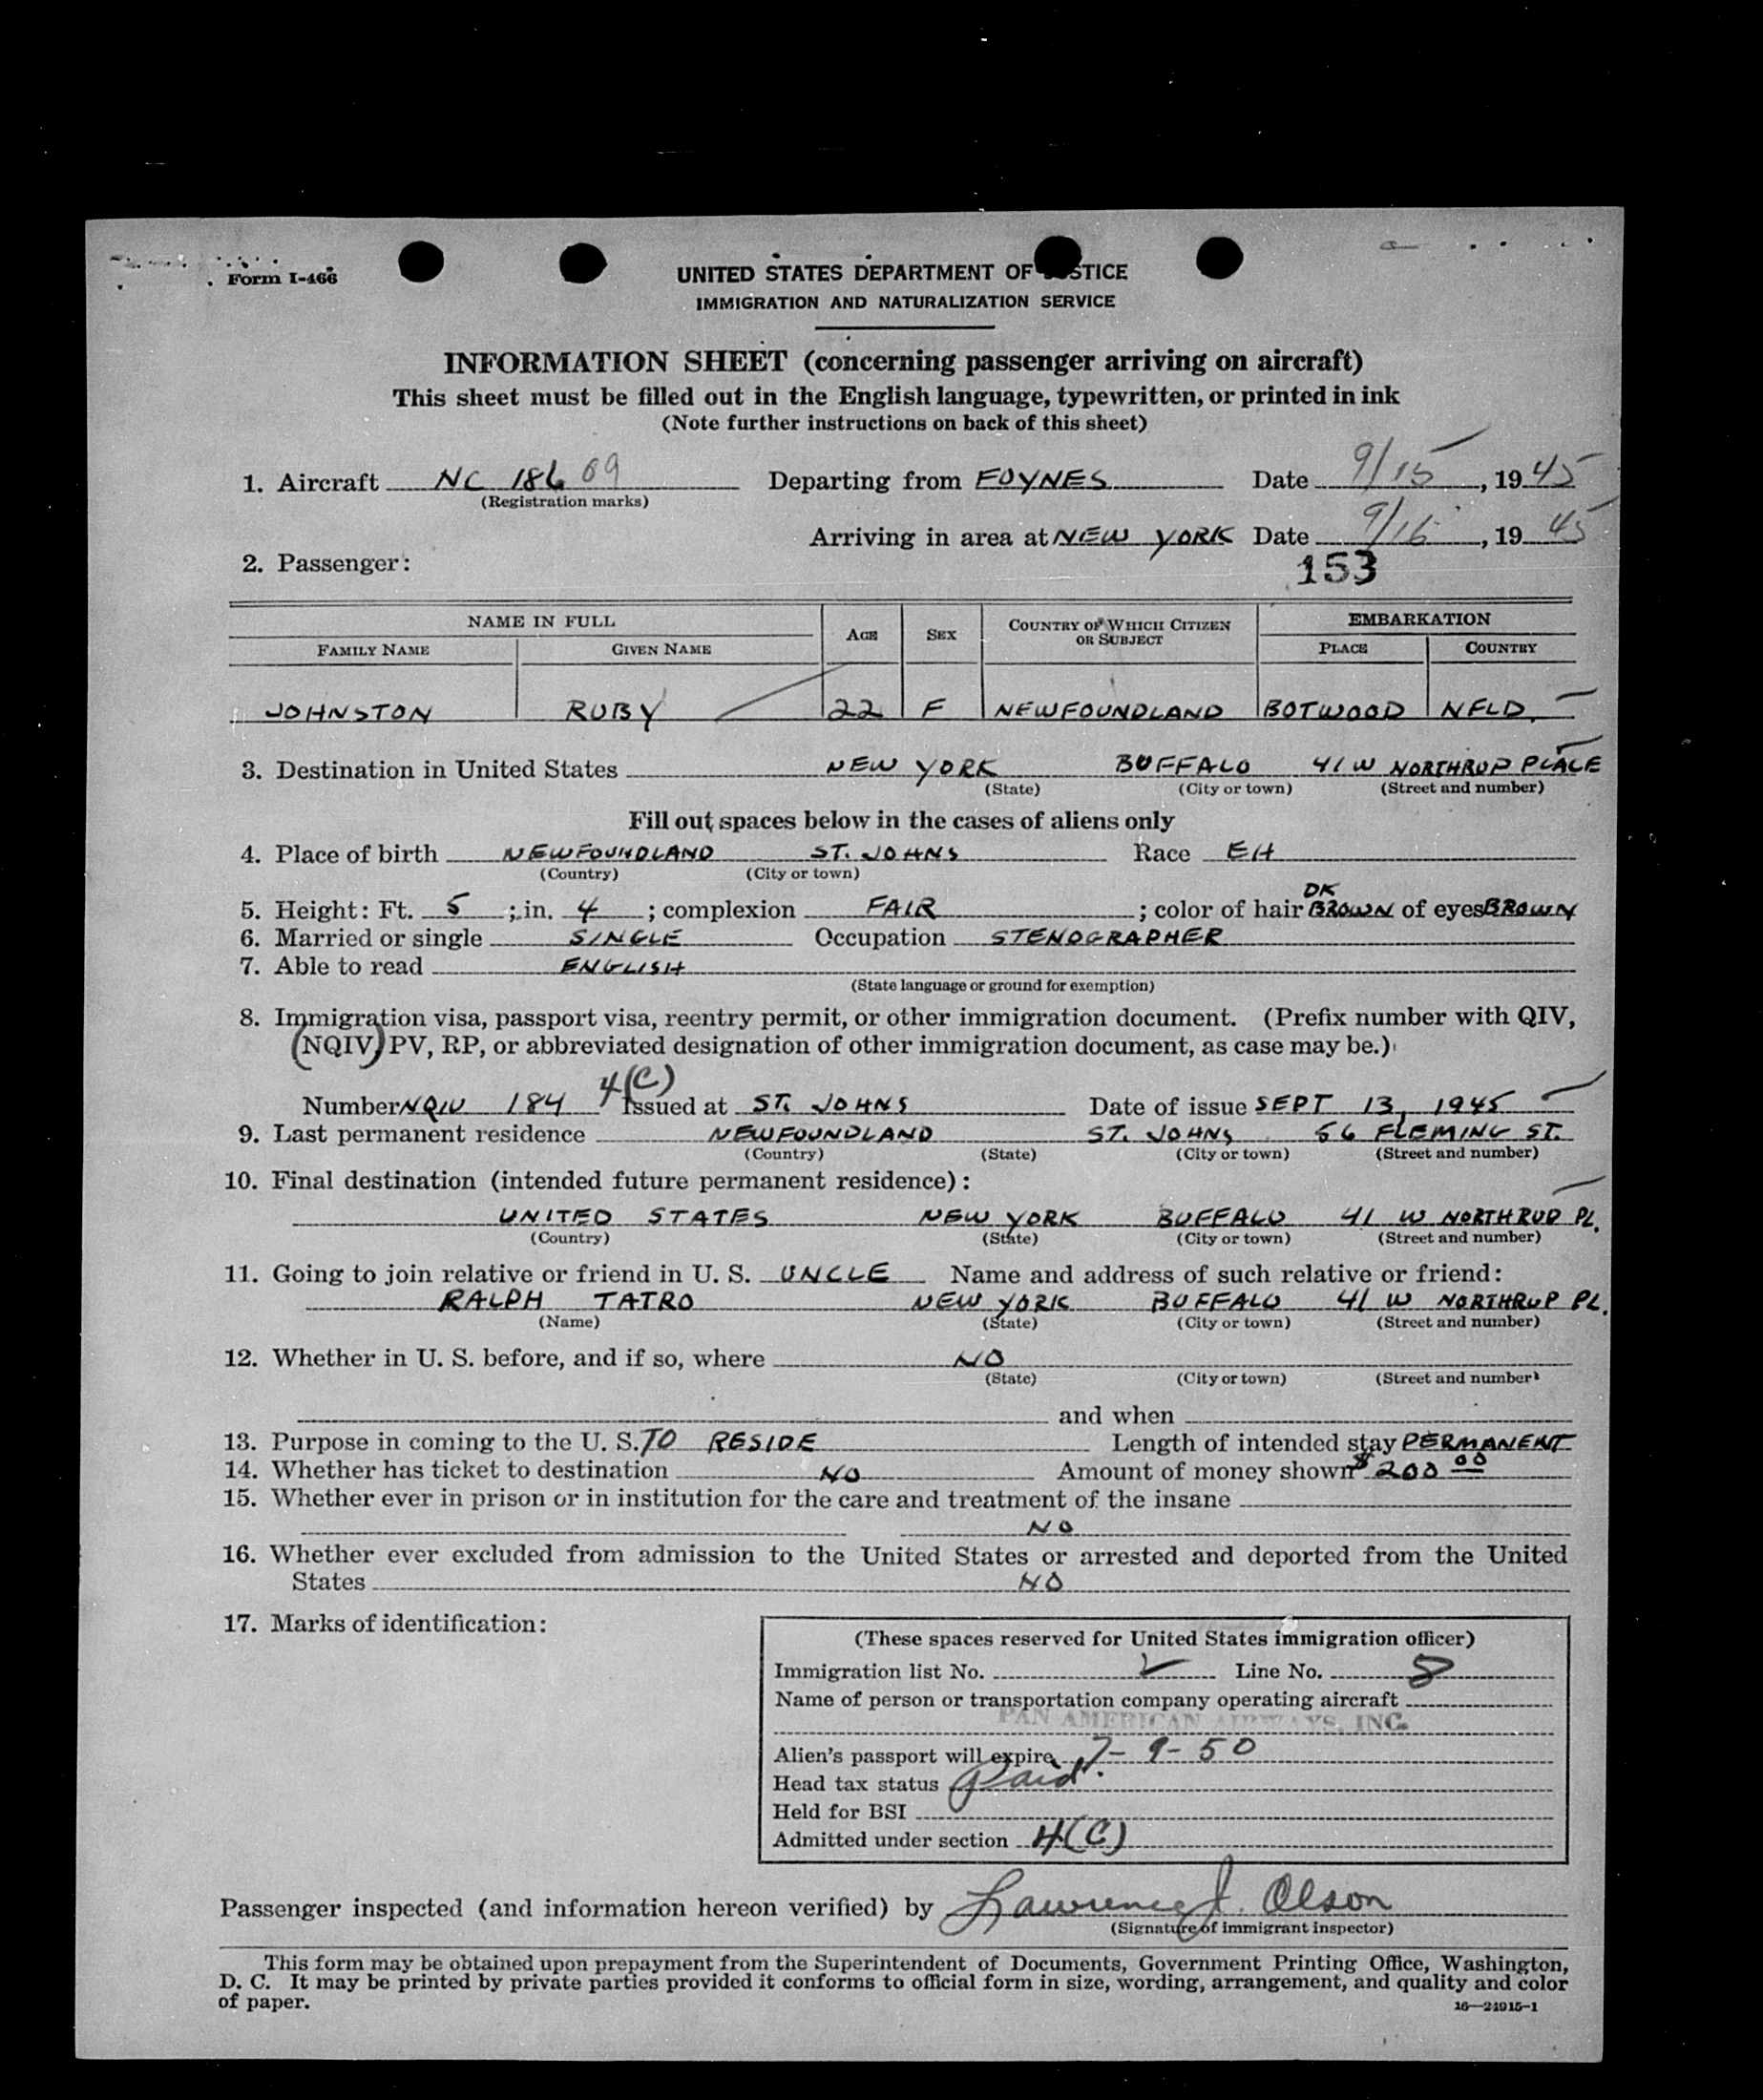 Form I-466
UNITED STATES DEPARTMENT OF JUSTICE
IMMIGRATION AND NATURALIZATION SERVICE
INFORMATION SHEET (concerning passenger arriving on aircraft)
This sheet must be filled out in the English language, typewritten, or printed in ink
(Note further instructions on back of this sheet)
1. Aircraft NC 18609 Departing from FOYNES Date 9/15, 1945
(Registration marks)
Arriving in area at NEW YORK Date 9/16, 1945
2. Passenger: 153
NAME IN FULL AGE SEX COUNTRY OF WHICH CITIZEN OR SUBJECT EMBARKATION
FAMILY NAME GIVEN NAME PLACE COUNTRY
JOHNSTON RUBY 22 F NEWFOUNDLAND BOTWOOD NFLD.
3. Destination in United States NEW YORK BUFFALO 41 W NORTHRUP PLACE
(State) (City or town) (Street and number)
Fill out spaces below in the cases of aliens only
4. Place of birth NEWFOUNDLAND ST. JOHNS Race EH
(Country) (City or town)
5. Height: Ft. 5 ; in. 4 ; complexion FAIR ; color of hair DK BROWN of eyes BROWN
6. Married or single SINGLE Occupation STENOGRAPHER
7. Able to read ENGLISH
(State language or ground for exemption)
8. Immigration visa, passport visa, reentry permit, or other immigration document. (Prefix number with QIV,
(NQIV) PV, RP, or abbreviated designation of other immigration document, as case may be.)
Number NQIV 184 4(C) Issued at ST. JOHNS Date of issue SEPT 13, 1945
9. Last permanent residence NEWFOUNDLAND ST. JOHNS 56 FLEMING ST.
(Country) (State) (City or town) (Street and number)
10. Final destination (intended future permanent residence):
UNITED STATES NEW YORK BUFFALO 41 W NORTHRUP PL.
(Country) (State) (City or town) (Street and number)
11. Going to join relative or friend in U. S. UNCLE Name and address of such relative or friend:
RALPH TATRO NEW YORK BUFFALO 41 W NORTHRUP PL.
(Name) (State) (City or town) (Street and number)
12. Whether in U. S. before, and if so, where NO
(State) (City or town) (Street and number)
and when
13. Purpose in coming to the U. S. TO RESIDE Length of intended stay PERMANENT
14. Whether has ticket to destination NO Amount of money shown $200 00
15. Whether ever in prison or in institution for the care and treatment of the insane
NO
16. Whether ever excluded from admission to the United States or arrested and deported from the United
States NO
17. Marks of identification:
(These spaces reserved for United States immigration officer)
Immigration list No. Line No. 8
Name of person or transportation company operating aircraft
PAN AMERICAN AIRWAYS, INC.
Alien's passport will expire 7-9-50
Head tax status Paid.
Held for BSI
Admitted under section 4(C)
Passenger inspected (and information hereon verified) by Lawrence J. Olson
(Signature of immigrant inspector)
This form may be obtained upon prepayment from the Superintendent of Documents, Government Printing Office, Washington,
D. C. It may be printed by private parties provided it conforms to official form in size, wording, arrangement, and quality and color
of paper.
16—24915-1